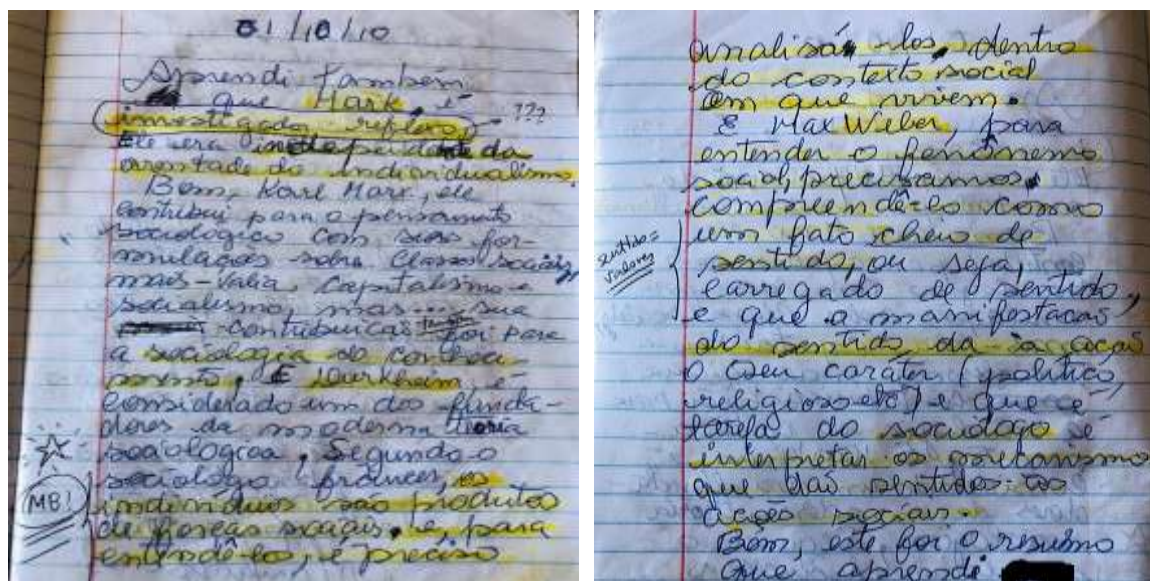 01/10/10
Aprendi também
que Mark, é
investigado reflexo, ???
Ele era independente da
vontade do individualismo.
Bom, Karl Marx, ele
contribui para o pensamento
sociológico com suas for-
mulações sobre classes sociais,
mais-valia, capitalismo e
socialismo, mas... sua
contribuição foi para
a sociologia do conheci-
mento. E Durkheim, é
considerado um dos funda-
dores da moderna teoria
sociológica, Segundo o
sociólogo francês, os
MB! indivíduos são produtos
de forças sociais. e, para
entendê-los, é preciso
analisá-los dentro
do contexto social
em que vivem.
E Max Weber, para
entender o fenônemo
social, precisamos
compreendê-lo como
um fato cheio de
sentido= valores
sentido, ou seja,
carregado de sentido,
e que a manifestacão
do sentido da à acão
o seu caráter (político
religioso etc) e que é
tarefa do sociólogo é
interpretar os mecanismo
que dão sentidos as
acões sociais.
Bom, este foi o resumo
que aprendi